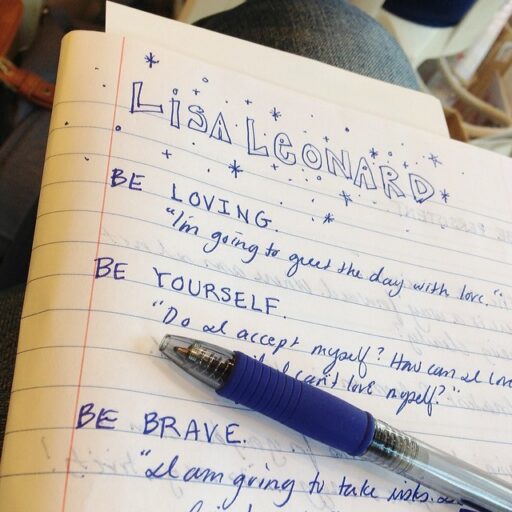 LISA LEONARD
BE LOVING.
"I'm going to greet the day with love."
BE YOURSELF.
"Do I accept myself? How can I love
if I can't love myself?"
BE BRAVE.
"I am going to take risks. I